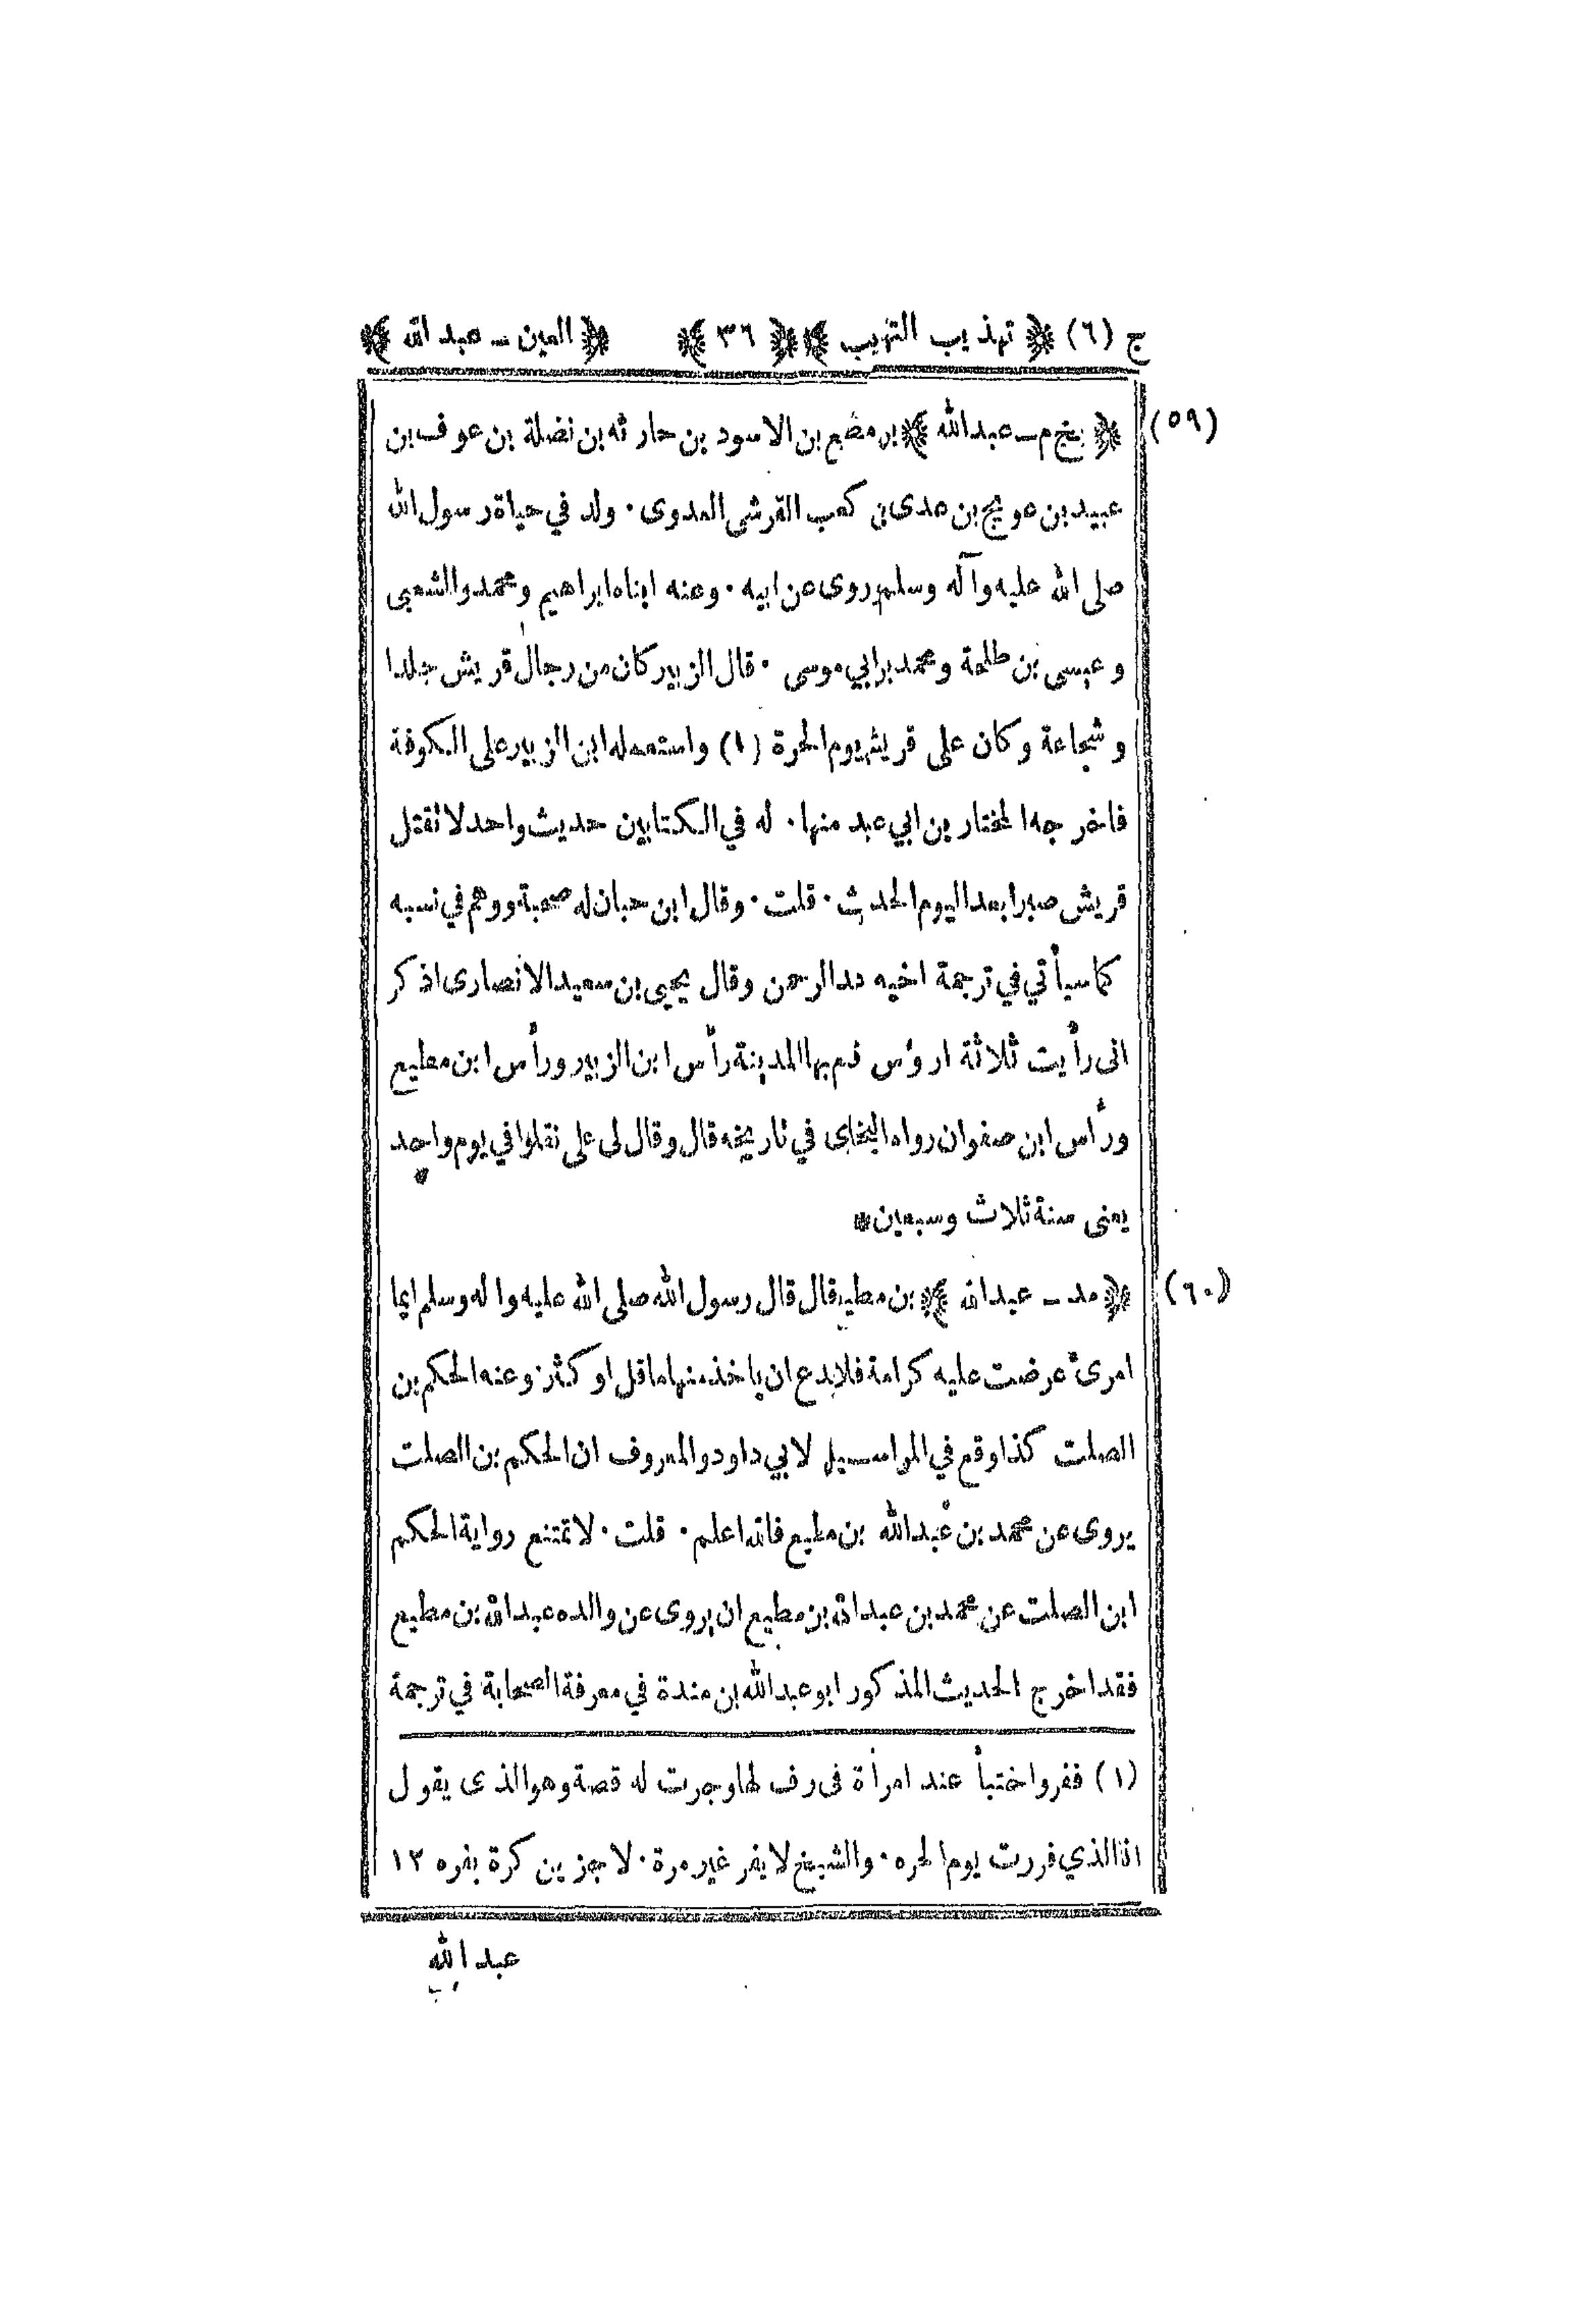 ج (٦) ﴿ تهذيب التهذيب ﴾ ﴿ ٣٦ ﴾ ﴿ العين ـ عبد الله ﴾
(٥٩) ﴿ بخ م ـ عبد الله ﴾ بن مطيع بن الاسود بن حارثه بن نضلة بن عوف بن
عبيد بن عويج بن عدى بن كعب القرشى العدوى · ولد في حياة رسول الله
صلى الله عليه وآله وسلم روى عن ابيه · وعنه ابناه ابراهيم ومحمد والشعبى
وعيسى بن طلحة ومحمد بن ابي موسى · قال الزبير كان من رجال قريش جلدا
وشجاعة وكان على قريش يوم الحرة (١) واستعمله ابن الزبير على الكوفة
فاخرجه المختار بن ابي عبيد منها · له في الكتابين حديث واحد لا تقتل
قريش صبرا بعد اليوم الحديث · قلت · وقال ابن حبان له صحبة ووهم في نسبه
كما سيأتي في ترجمة اخيه عبد الرحمن وقال يحيى بن سعيد الانصارى اذكر
انى رأيت ثلاثة ارؤس قدم بها المدينة رأس ابن الزبير ورأس ابن مطيع
ورأس ابن صفوان رواه البخارى في تاريخه قال وقال لى على نقلوا في يوم واحد
يعنى سنة ثلاث وسبعين*
(٦٠) ﴿ مد ـ عبد الله ﴾ بن مطيع قال قال رسول الله صلى الله عليه واله وسلم ايما
امرئ عرضت عليه كرامة فلا يدع ان ياخذ منها ما قل او كثر · وعنه الحكم بن
الصلت كذا وقع في المراسيل لابي داود والمعروف ان الحكم بن الصلت
يروى عن محمد بن عبد الله بن مطيع فالله اعلم · قلت · لا تمتنع رواية الحكم
ابن الصلت عن محمد بن عبد الله بن مطيع ان يروى عن والده عبد الله بن مطيع
فقد اخرج الحديث المذكور ابو عبد الله بن مندة في معرفة الصحابة في ترجمة
(١) ففر واختبأ عند امرأة فى رف لها وجرت له قصة وهو الذى يقول
انا الذي فررت يوم الحره · والشيخ لا يفر غير مرة · لاجزين كرة بفره ١٢
عبد الله